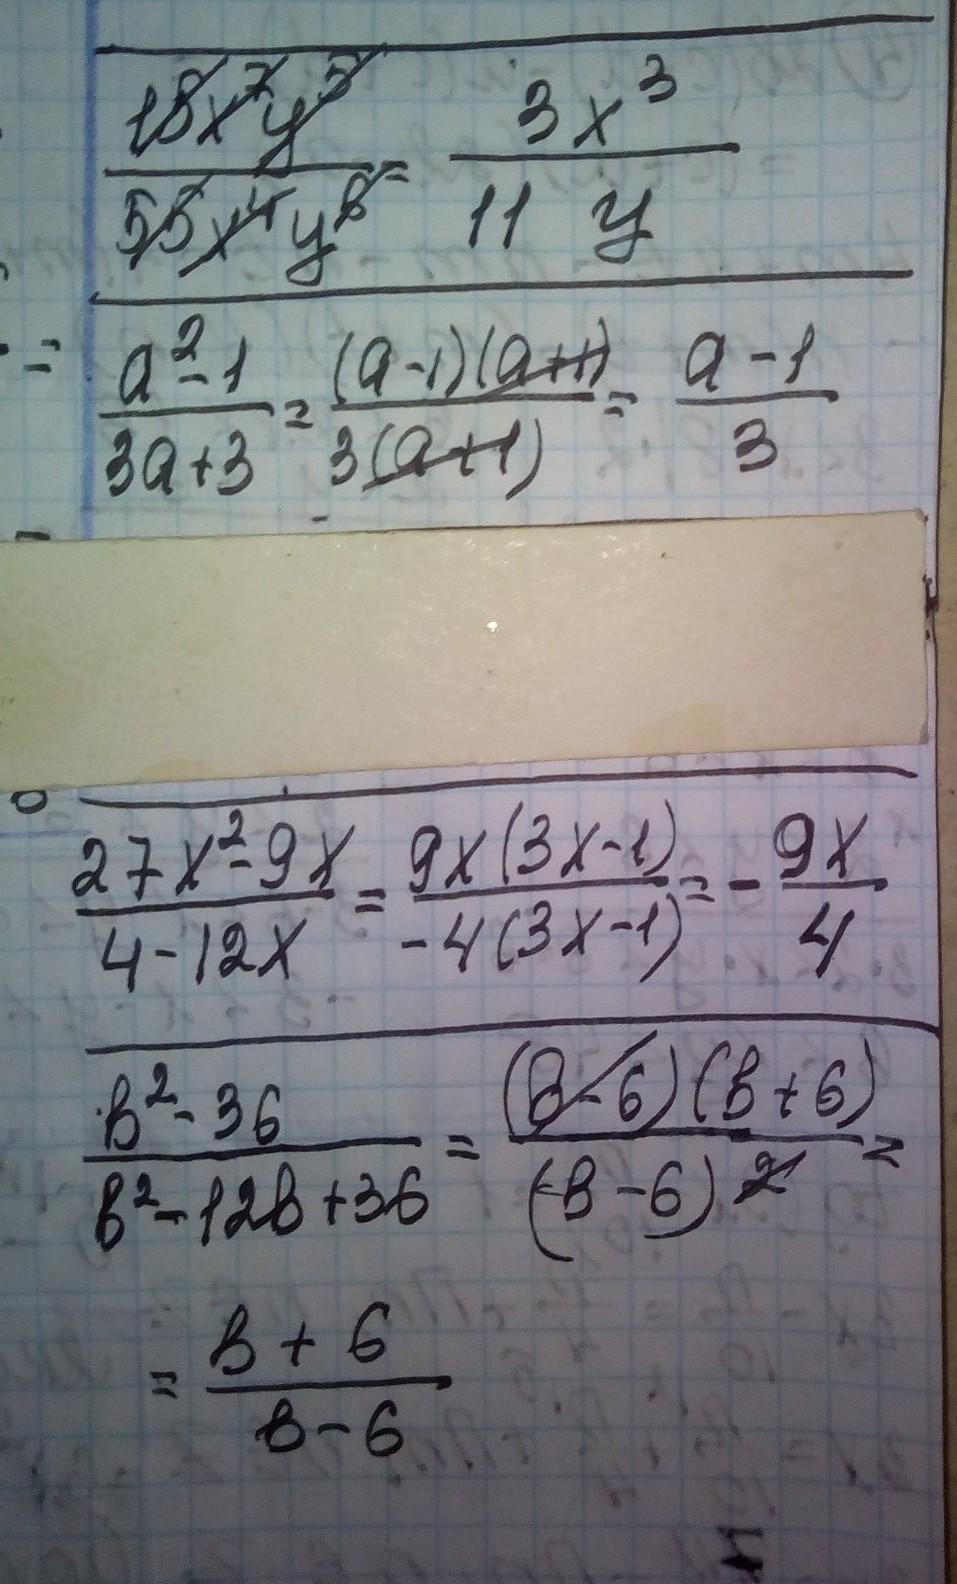 15x⁷y⁵/55x⁴y⁶ = 3x³/11y
= a²-1/3a+3 = (a-1)(a+1)/3(a+1) = a-1/3
27x²-9x/4-12x = 9x(3x-1)/-4(3x-1) = -9x/4
в²-36/в²-12в+36 = (в-6)(в+6)/(в-6)² =
= в+6/в-6